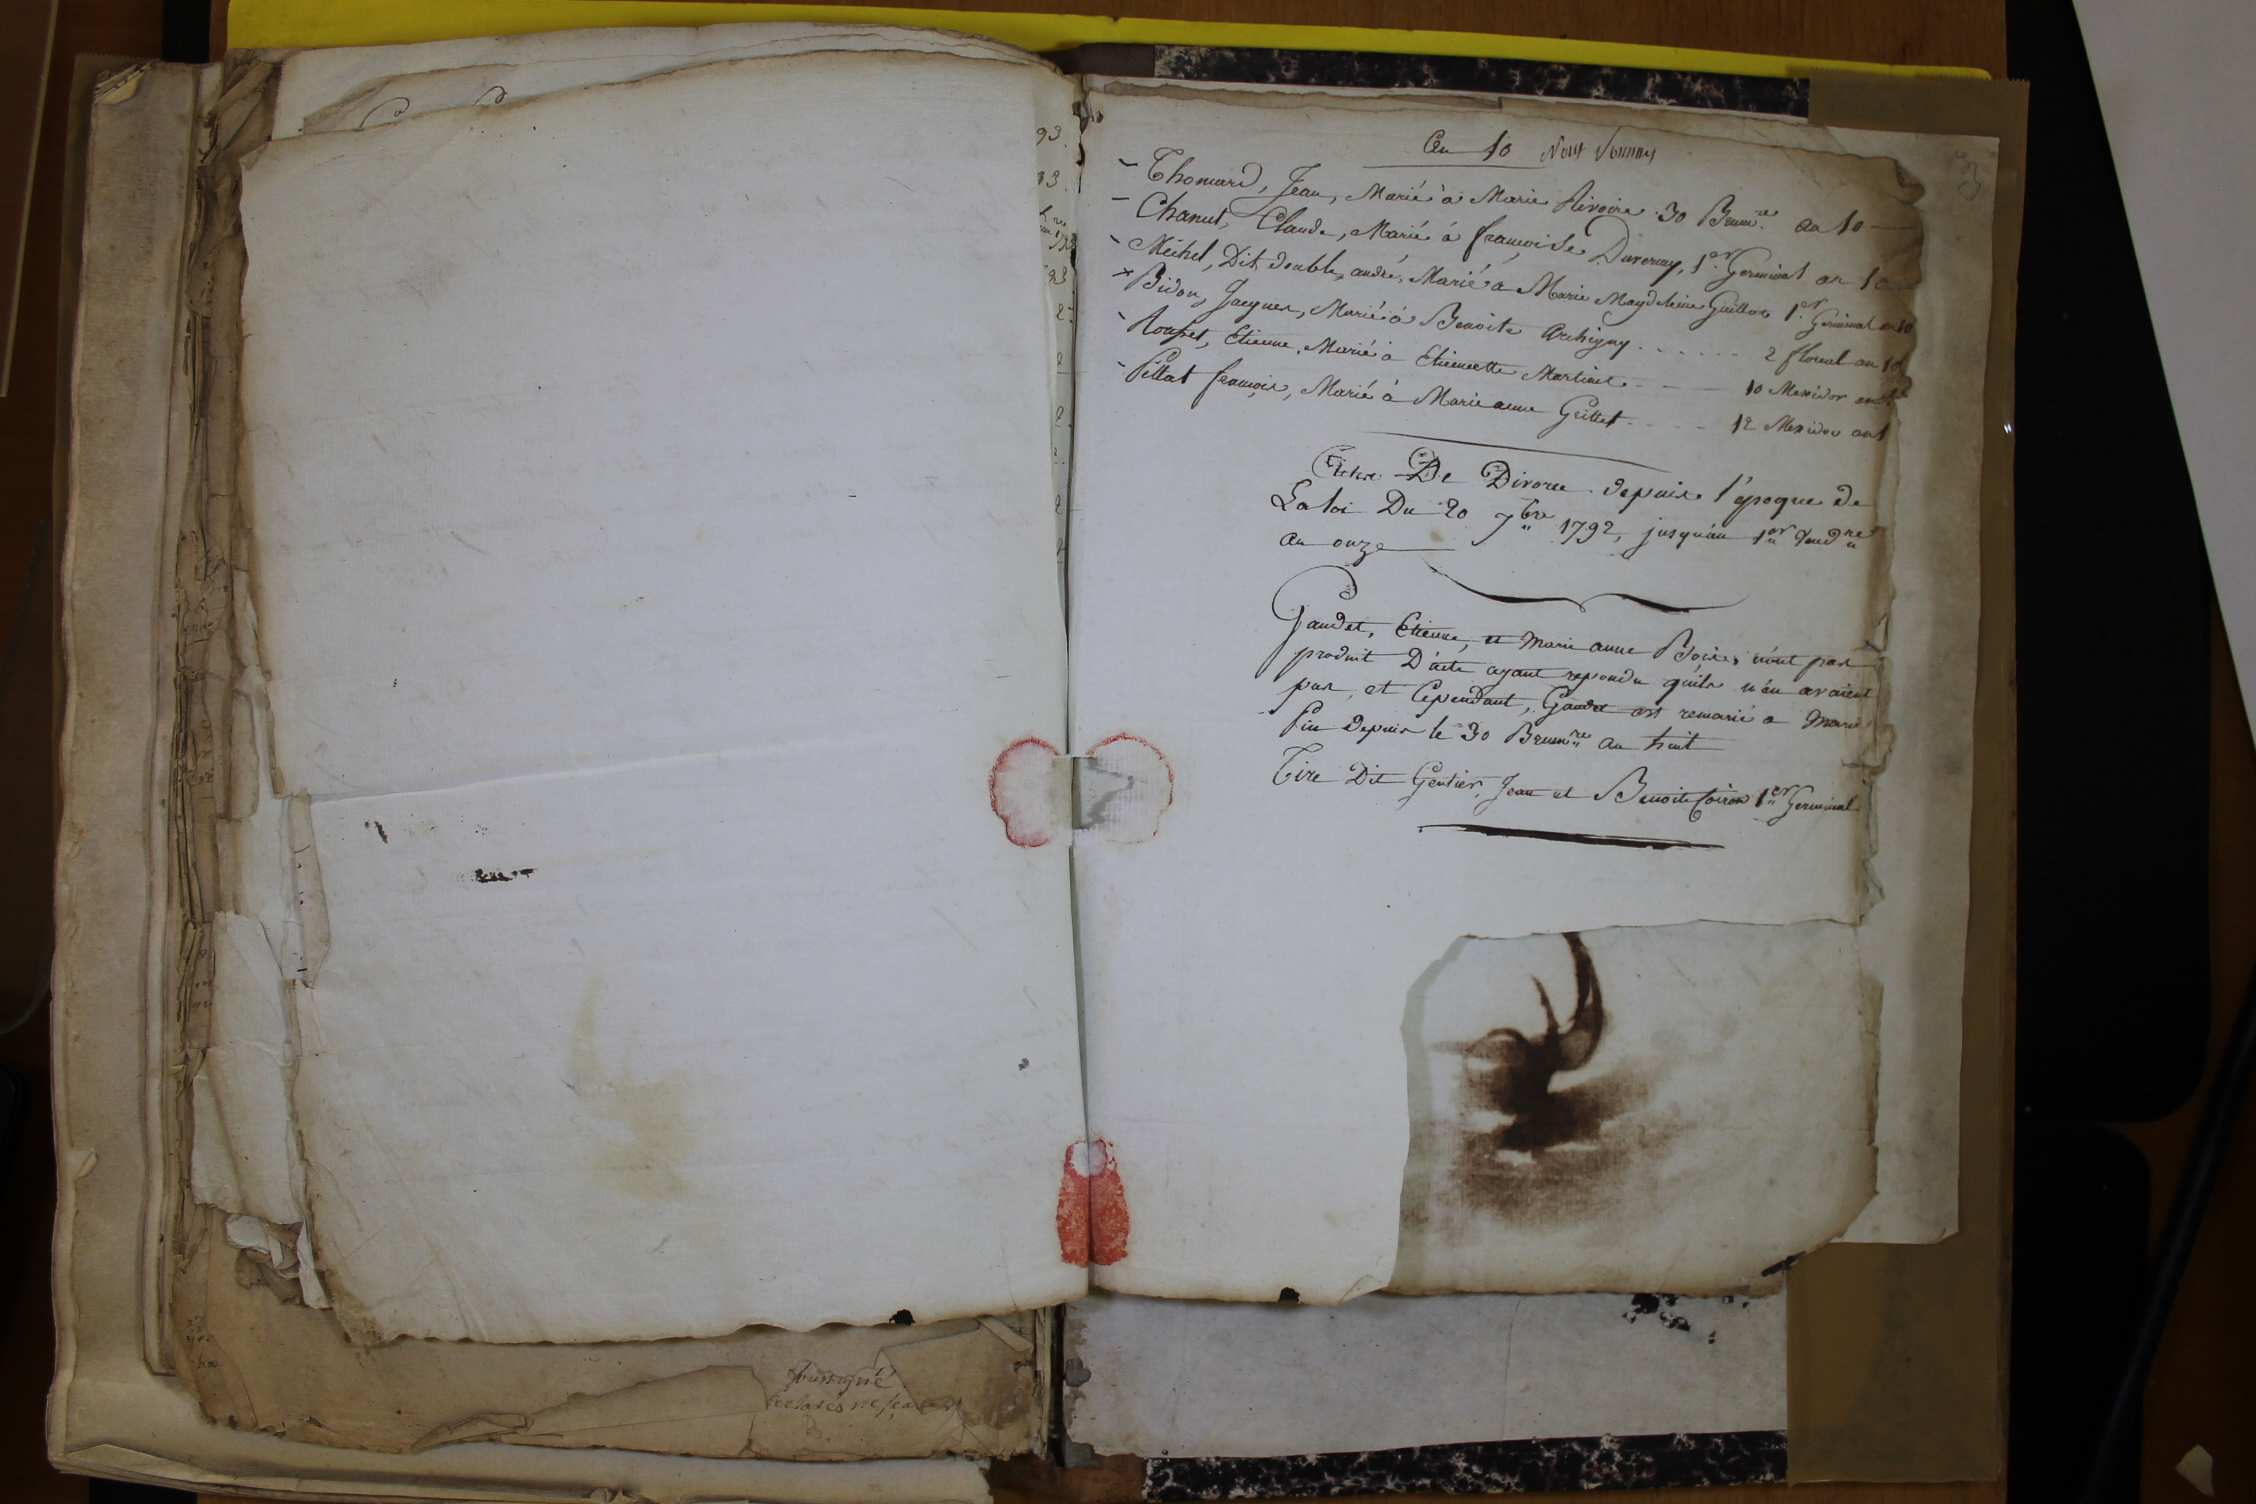 93.
93.
2
2
2
2
2
an 10
3
- Thomard, Jean, Marié à Marie Rivoire 30 Brumre. an 10 —
- Chanut, Claude, Marié à françoise Duvernay, 1er. Germinal an 10
- Michel, Dit double, andré, Marié a Marie Magdeleine Guillon 1er. Germinal an 10
+ Bidon, Jacques, Marié à Benoite Archigny . . . . . . 2 floreal an 10
- Etienne, Marié à Etiennette Martinet . . . 10 Messidor an 10
- Pillat françois, Marié à Marie anne Grillet . . . . 12 Messidor an 1
De Divorce depuis l'époque de
La loi Du 20 7bre 1792, jusqu'au 1er Vendre
an onze
Gaudet, Etienne, et Marie anne n'ont pas
produit D'acte ayant repondu qu'ils n'en avaient
pas, et Cependant, Gaudet est remarié a Marie
Piu depuis le 30 Brumre an huit
Tire Dit Gentier, Jean et Benoite Coiron 1er Germinal
soussigné